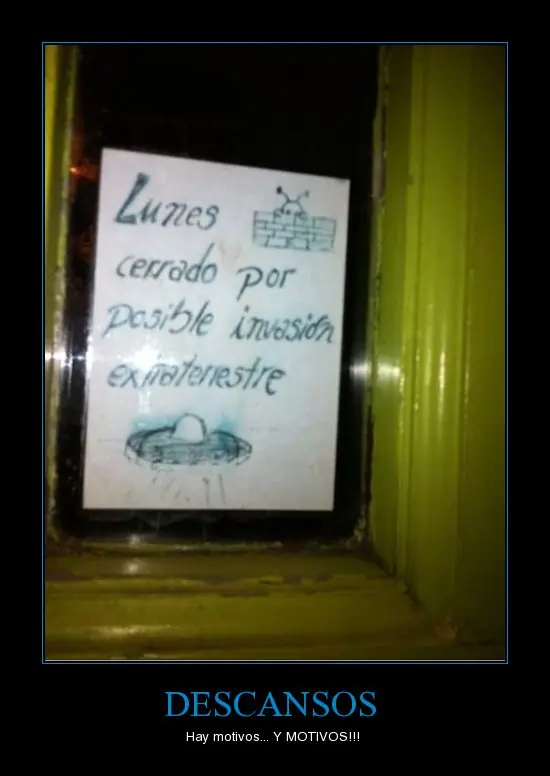 Lunes
cerrado por
posible invasión
extraterrestre
DESCANSOS
Hay motivos... Y MOTIVOS!!!